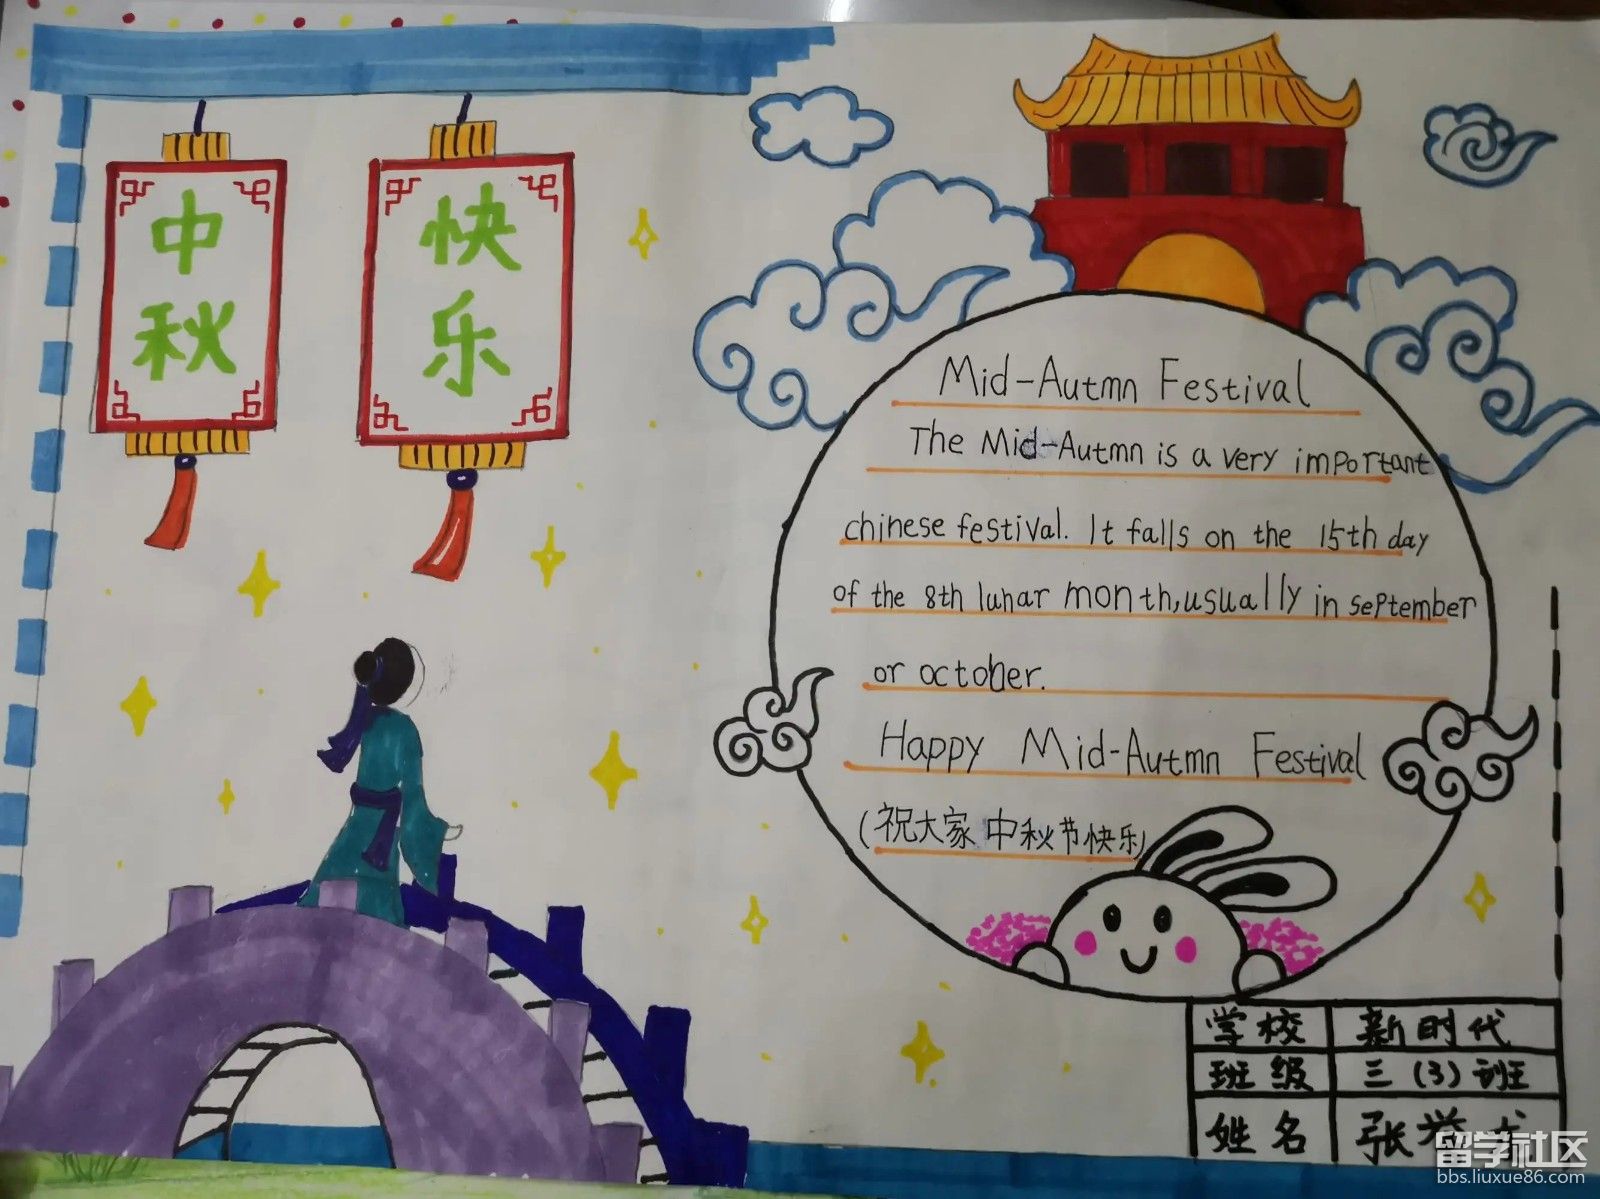 中秋
快乐
Mid-Autmn Festival
The Mid-Autmn is a very important
chinese festival. It falls on the 15th day
of the 8th lunar month,usually in september
or october.
Happy Mid-Autmn Festival
(祝大家中秋节快乐)
学校 新时代
班级 三(3)班
姓名 张
留学社区
bbs.liuxue86.com